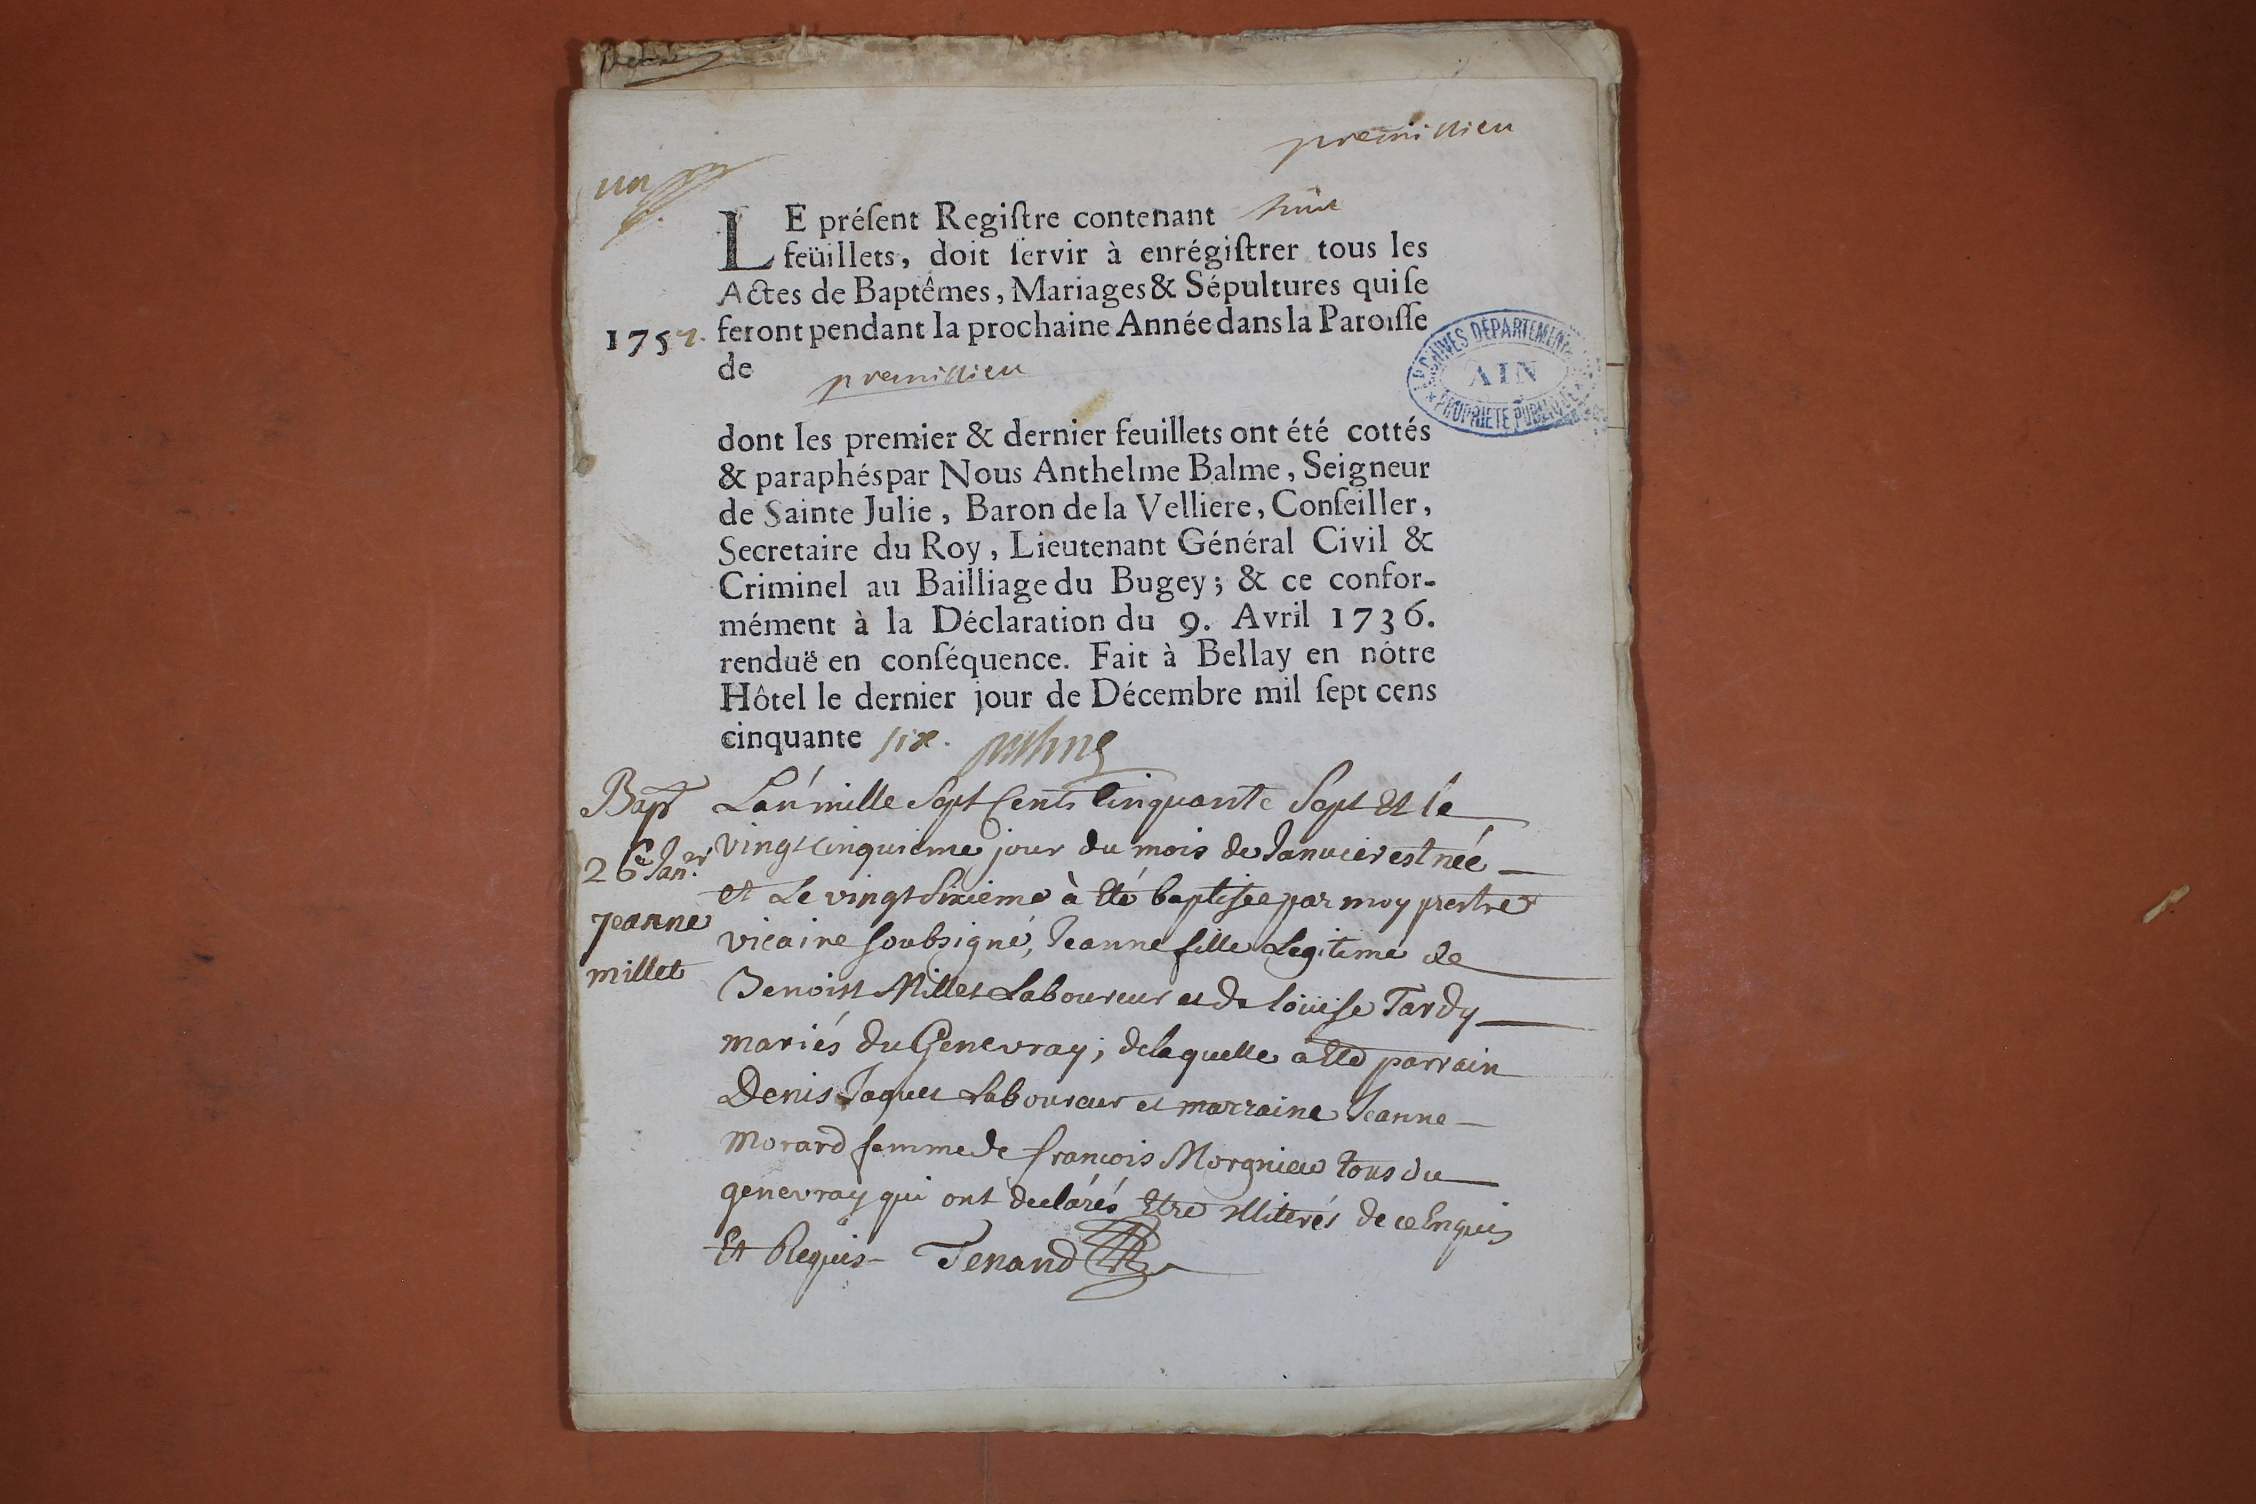 premillieu
un
LE préſent Regiſtre contenant huit
feüillets, doit ſervir à enrégiſtrer tous les
Actes de Baptêmes, Mariages & Sépultures qui ſe
1757. feront pendant la prochaine Année dans la Paroiſſe
de premillieu
ARCHIVES DÉPARTEMENTALES
AIN
PROPRIÉTÉ PUBLIQUE
dont les premier & dernier feuillets ont été cottés
& paraphés par Nous Anthelme Balme, Seigneur
de Sainte Julie, Baron de la Velliere, Conſeiller,
Secretaire du Roy, Lieutenant Général Civil &
Criminel au Bailliage du Bugey; & ce confor-
mément à la Déclaration du 9. Avril 1736.
renduë en conſéquence. Fait à Bellay en nôtre
Hôtel le dernier jour de Décembre mil ſept cens
cinquante six.
Bapt
26e Janer
Jeanne
millet
L'an mille Sept Cents Cinquante Sept Et le
vingt cinquieme jour du mois de Janvier est née
et Le vingt Sixieme à Eté baptisée par moy prestre
vicaire soubsigné, Jeanne fille Legitime de
Benoist Millet Laboureur et de loüise Tardy
mariés du Genevray; de laquelle a Eté parrain
Denis Jaquet Laboureur et marraine Jeanne
Morard femme de françois Morgnieu tous du
genevray qui ont declárés Etre illiterés de ce Enquis
Et Requis Tenand